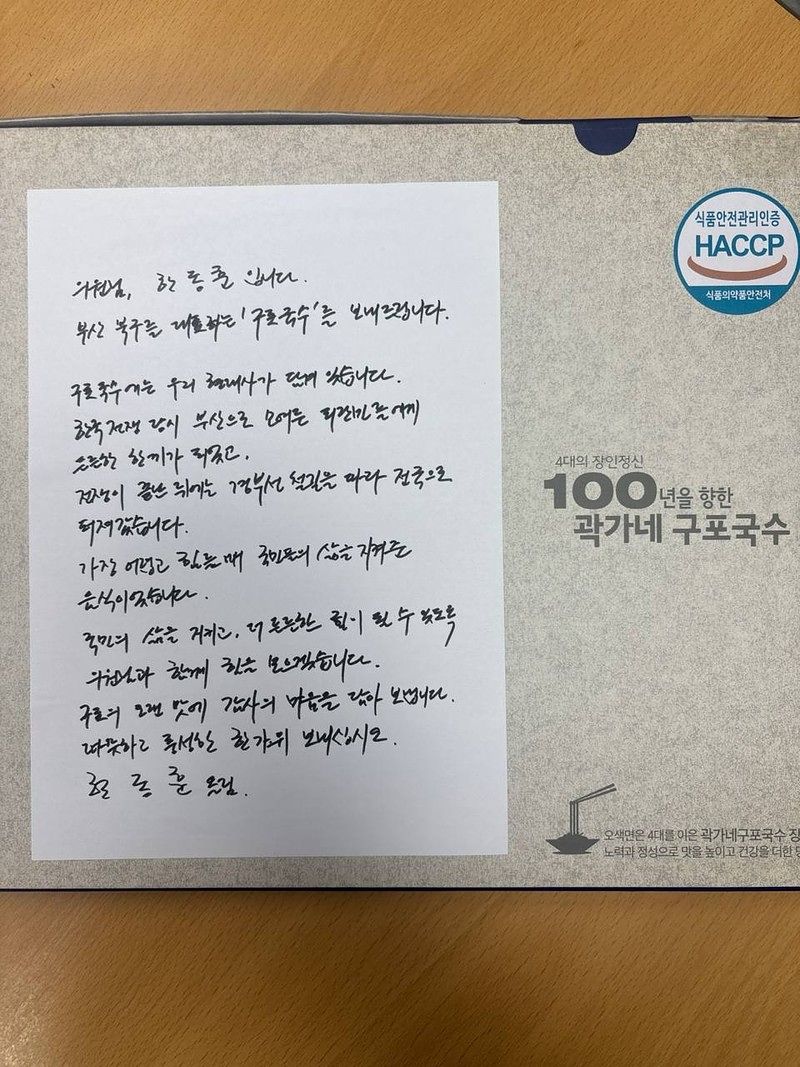 의원님, 한동훈입니다.
부산 북구를 대표하는 '구포국수'를 보내드립니다.
구포국수에는 우리 현대사가 담겨 있습니다.
한국전쟁 당시 부산으로 모여든 피란민들에게
든든한 한끼가 되었고,
전쟁이 끝난 뒤에는 경부선 철길을 따라 전국으로
퍼져갔습니다.
가장 어렵고 힘들 때 국민들의 삶을 지켜준
음식이었습니다.
국민의 삶을 지키고, 더 든든한 힘이 될 수 있도록
의원님과 함께 힘을 모으겠습니다.
구포의 오랜 맛에 감사의 마음을 담아 보냅니다.
따뜻하고 풍성한 한가위 보내십시오.
한동훈 올림.
식품안전관리인증
HACCP
식품의약품안전처
4대의 장인정신
100년을 향한
곽가네 구포국수
오색면은 4대를 이은 곽가네구포국수 장
노력과 정성으로 맛을 높이고 건강을 더한